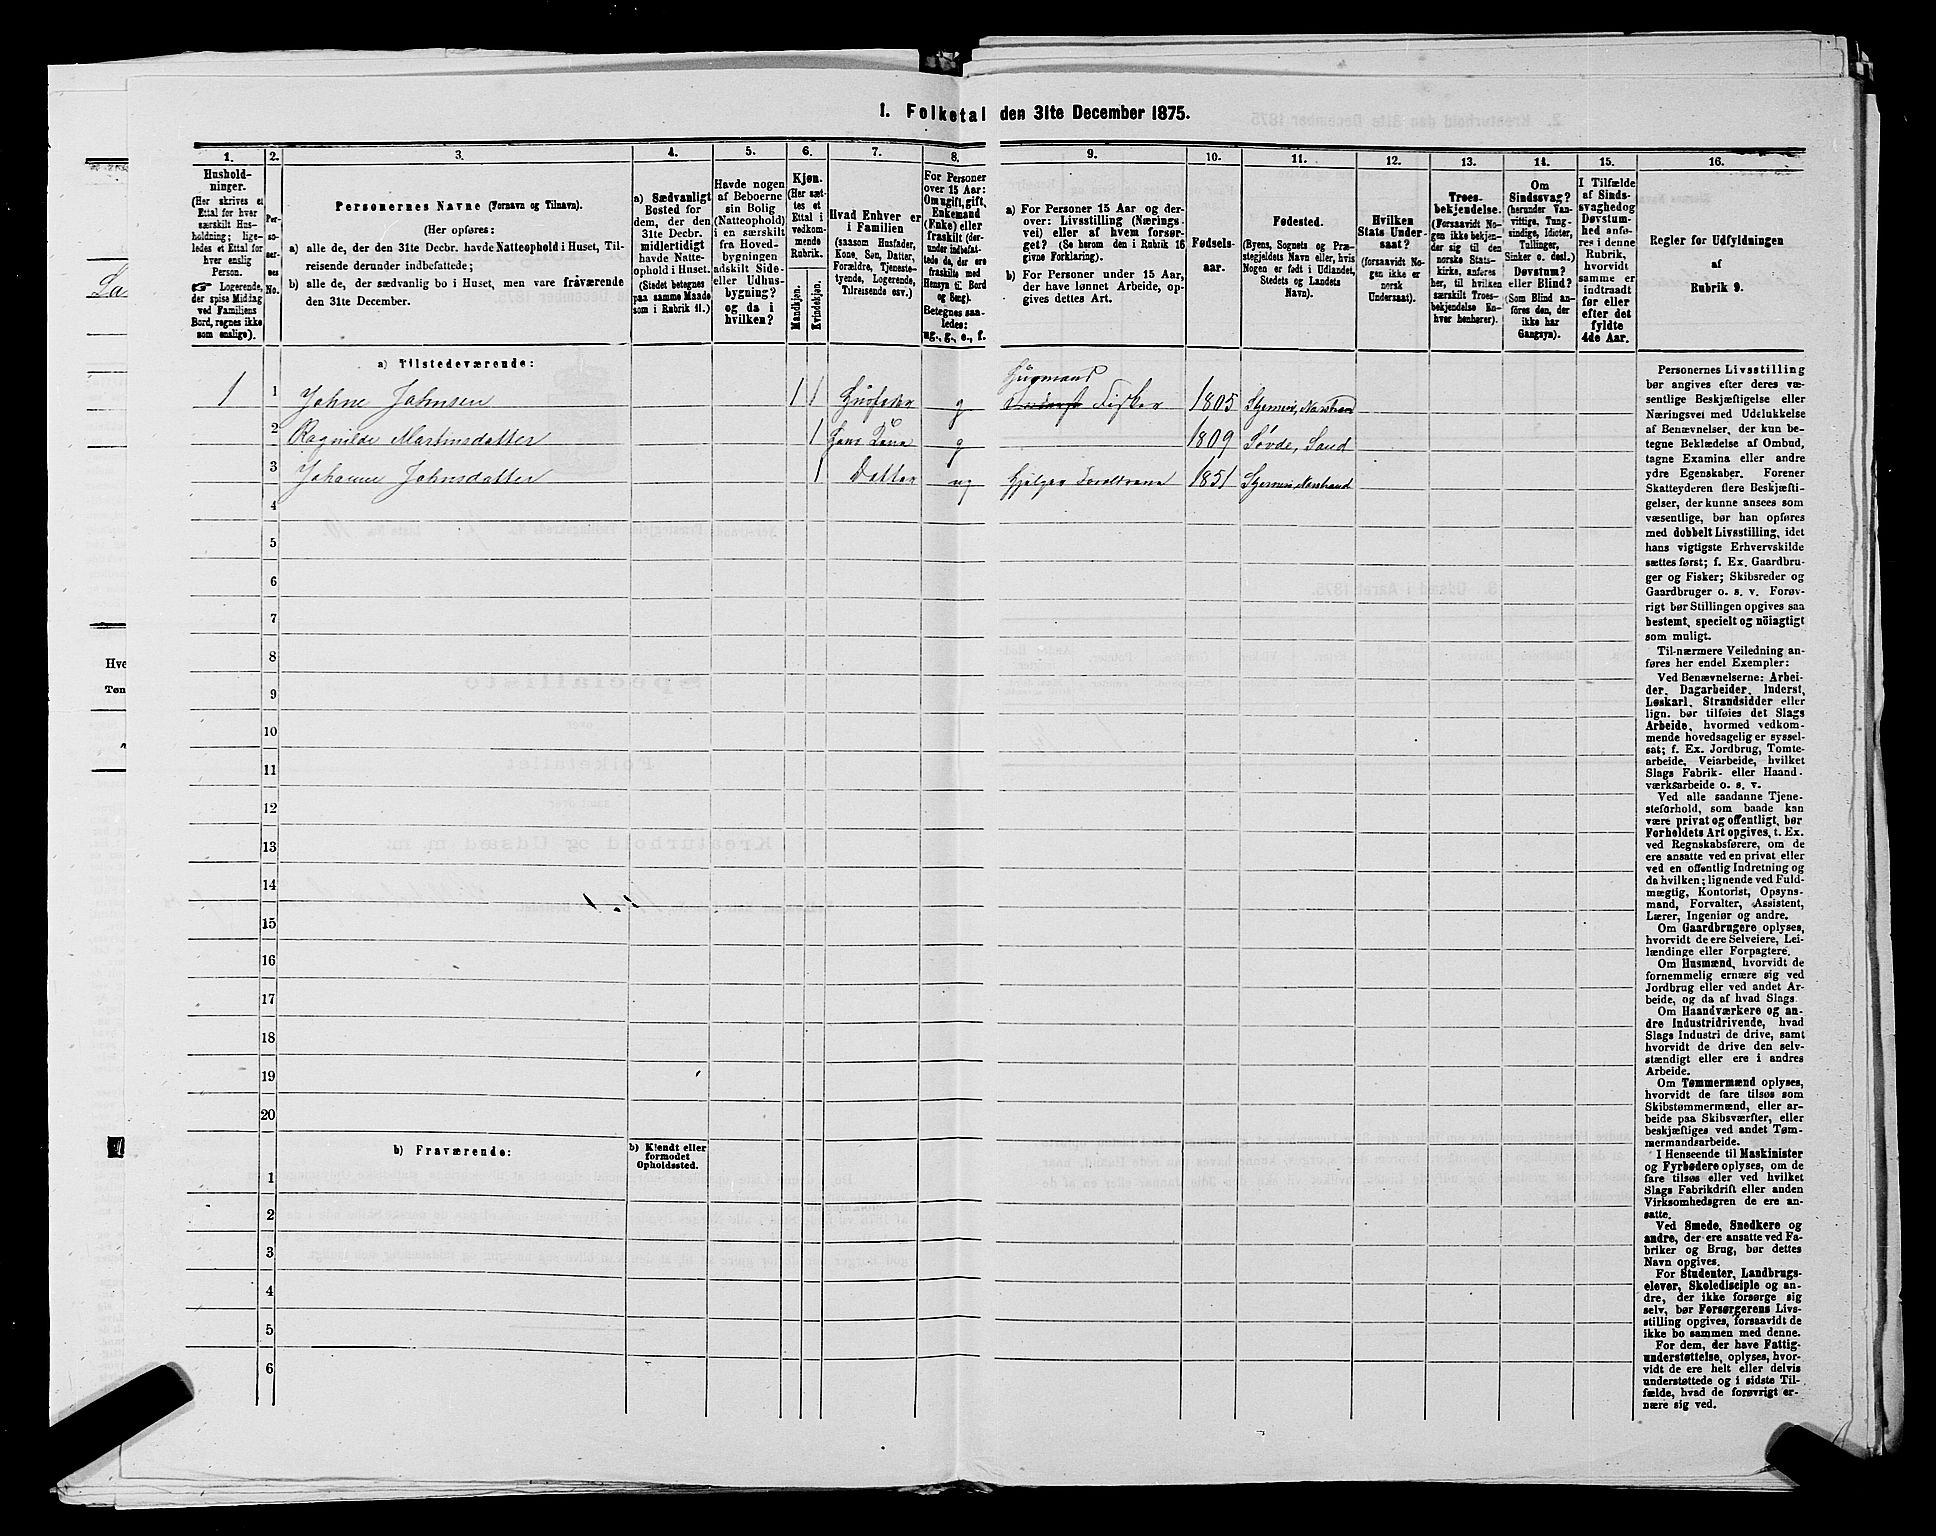 1. Folketal den 31te December 1875.
1. 2. 3. 4. 5. 6. 7. 8. 9. 10. 11. 12. 13. 14. 15. 16.
Hushold-
ninger.
(Her skrives et
Ettal for hver
særskilt Hus-
holdning; lige-
ledes et Ettal for
hver enslig
Person.
☞ Logerende,
der spise Middag
ved Familiens
Bord, regnes ikke
som enslige).
Per-
so-
ner-
nes
No.
Personernes Navne (Fornavn og Tilnavn).
(Her opføres:
a) alle de, der den 31te Decbr. havde Natteophold i Huset, Til-
reisende derunder indbefattede;
b) alle de, der sædvanlig bo i Huset, men vare fraværende
den 31te December.
a) Sædvanligt
Bosted for
dem, der den
31te Decbr.
midlertidigt
havde Natte-
ophold i Huset.
(Stedet betegnes
paa samme Maade
som i Rubrik 11.)
Havde nogen
af Beboerne
sin Bolig
(Natteophold)
i en særskilt
fra Hoved-
bygningen
adskilt Side-
eller Udhus-
bygning?
og da i
hvilken?
Kjøn.
(Her sæt-
tes et
Ettal i
vedkom-
mende
Rubrik.
Mandkjøn.
Kvindekjøn.
Hvad Enhver er
i Familien
(saasom Husfader,
Kone, Søn, Datter,
Forældre, Tjeneste-
tyende, Logerende,
Tilreisende osv.)
For Personer
over 15 Aar:
Om ugift, gift,
Enkemand
(Enke) eller
fraskilt (der-
under indbefat-
tede de, der ere
fraskilte med
Hensyn til Bord
og Seng).
Betegnes saa-
ledes:
ug., g., e., f.
a) For Personer 15 Aar og der-
over: Livsstilling (Nærings-
vei) eller af hvem forsør-
get? (Se herom den i Rubrik 16
givne Forklaring).
b) For Personer under 15 Aar,
der have lønnet Arbeide, op-
gives dettes Art.
Fødsels-
aar.
Fødested.
(Byens, Sognets og Præ-
stegjeldets Navn eller, hvis
Nogen er født i Udlandet,
Stedets og Landets
Navn).
Hvilken
Stats Under-
saat?
(forsaavidt No-
gen ikke er
norsk
Undersaat).
Troes-
bekjendelse.
(Forsaavidt No-
gen ikke bekjen-
der sig til den
norske Stats-
kirke, anføres
her, til hvilken
særskilt Troes-
bekjendelse En-
hver henhører).
Om
Sindssvag?
(herunder Van-
vittige, Tung-
sindige, Idioter,
Tullinger,
Sinker o. desl.)
Døvstum?
eller Blind?
(Som Blind an-
føres den, der
ikke har
Gangsyn).
I Tilfælde
af Sinds-
svaghed og
Døvstum-
hed anfø-
res i denne
Rubrik,
hvorvidt
samme er
indtraadt
før eller
efter det
fyldte
4de Aar.
Regler for Udfyldningen
af
Rubrik 9.
a) Tilstedeværende:
Husmand
1 1 Johne Johnsen 1 1 Husfader g Fisker 1805 Stjernerø, Nærstrand
2 Ragnilde Martinsdatter 1 Hans Kone g 1809 Søvde, Sand
3 Johanne Johnsdatter 1 Datter ug Hjælper Forældrene 1851 Stjernerø, Nærstrand
4
5
6
7
8
9
10
11
12
13
14
15
16
17
18
19
20
b) Fraværende: b) Kjendt eller
formodet
Opholdssted.
1
2
3
4
5
6
Personernes Livsstilling
bør angives efter deres væ-
sentlige Beskjæftigelse eller
Næringsvei med Udelukkelse
af Benævnelser, der kun be-
tegne Beklædelse af Ombud,
tagne Examina eller andre
ydre Egenskaber. Forener
Skatteyderen flere Beskjæfti-
gelser, der kunne ansees som
væsentlige, bør han opføres
med dobbelt Livsstilling, idet
hans vigtigste Erhvervskilde
sættes først; f. Ex. Gaardbru-
ger og Fisker; Skibsreder og
Gaardbruger o. s. v. Forøv-
rigt bør Stillingen opgives saa
bestemt, specielt og nøiagtigt
som muligt.
Til nærmere Veiledning an-
føres her endel Exempler:
Ved Benævnelserne: Arbei-
der, Dagarbeider, Inderst,
Løskarl, Strandsidder eller
lign. bør tilføies det Slags
Arbeide, hvormed vedkom-
mende hovedsagelig er syssel-
sat; f. Ex. Jordbrug, Tomte-
arbeide, Veiarbeide, hvilket
Slags Fabrik- eller Haand-
værksarbeide o. s. v.
Ved alle saadanne Tjene-
steforhold, som baade kan
være privat og offentligt, bør
Forholdets Art opgives, t. Ex.
ved Regnskabsførere, om de
ere ansatte ved en privat eller
ved en offentlig Indretning og
da hvilken; lignende ved Fuld-
mægtig, Kontorist, Opsyns-
mand, Forvalter, Assistent,
Lærer, Ingeniør og andre.
Om Gaardbrugere oplyses,
hvorvidt de ere Selveiere, Lei-
lændinge eller Forpagtere.
Om Husmænd, hvorvidt de
fornemmelig ernære sig ved
Jordbrug eller ved andet Ar-
beide, og da af hvad Slags.
Om Haandværkere og an-
dre Industridrivende, hvad
Slags Industri de drive, samt
hvorvidt de drive den selv-
stændigt eller ere i andres
Arbeide.
Om Tømmermænd oplyses,
hvorvidt de fare tilsøs som
Skibstømmermænd, eller ar-
beide paa Skibsværfter, eller
beskjæftiges ved andet Tøm-
mermandsarbeide.
I Henseende til Maskinister
og Fyrbødere oplyses, om de
fare tilsøs eller ved hvilket
Slags Fabrikdrift eller anden
Virksomhedsgren de ere an-
satte.
Ved Smede, Snedkere og
andre, der ere ansatte ved Fa-
briker og Brug, bør dettes
Navn opgives.
For Studenter, Landbrugs-
elever, Skoledisciple og an-
dre, der ikke forsørge sig
selv, bør Forsørgerens Livs-
stilling opgives, forsaavidt de
ikke bo sammen med denne.
For dem, der have Fattig-
understøttelse, oplyses, hvor-
vidt de ere helt eller delvis
understøttede og i sidste Til-
fælde, hvad de forøvrigt er-
nære sig ved.